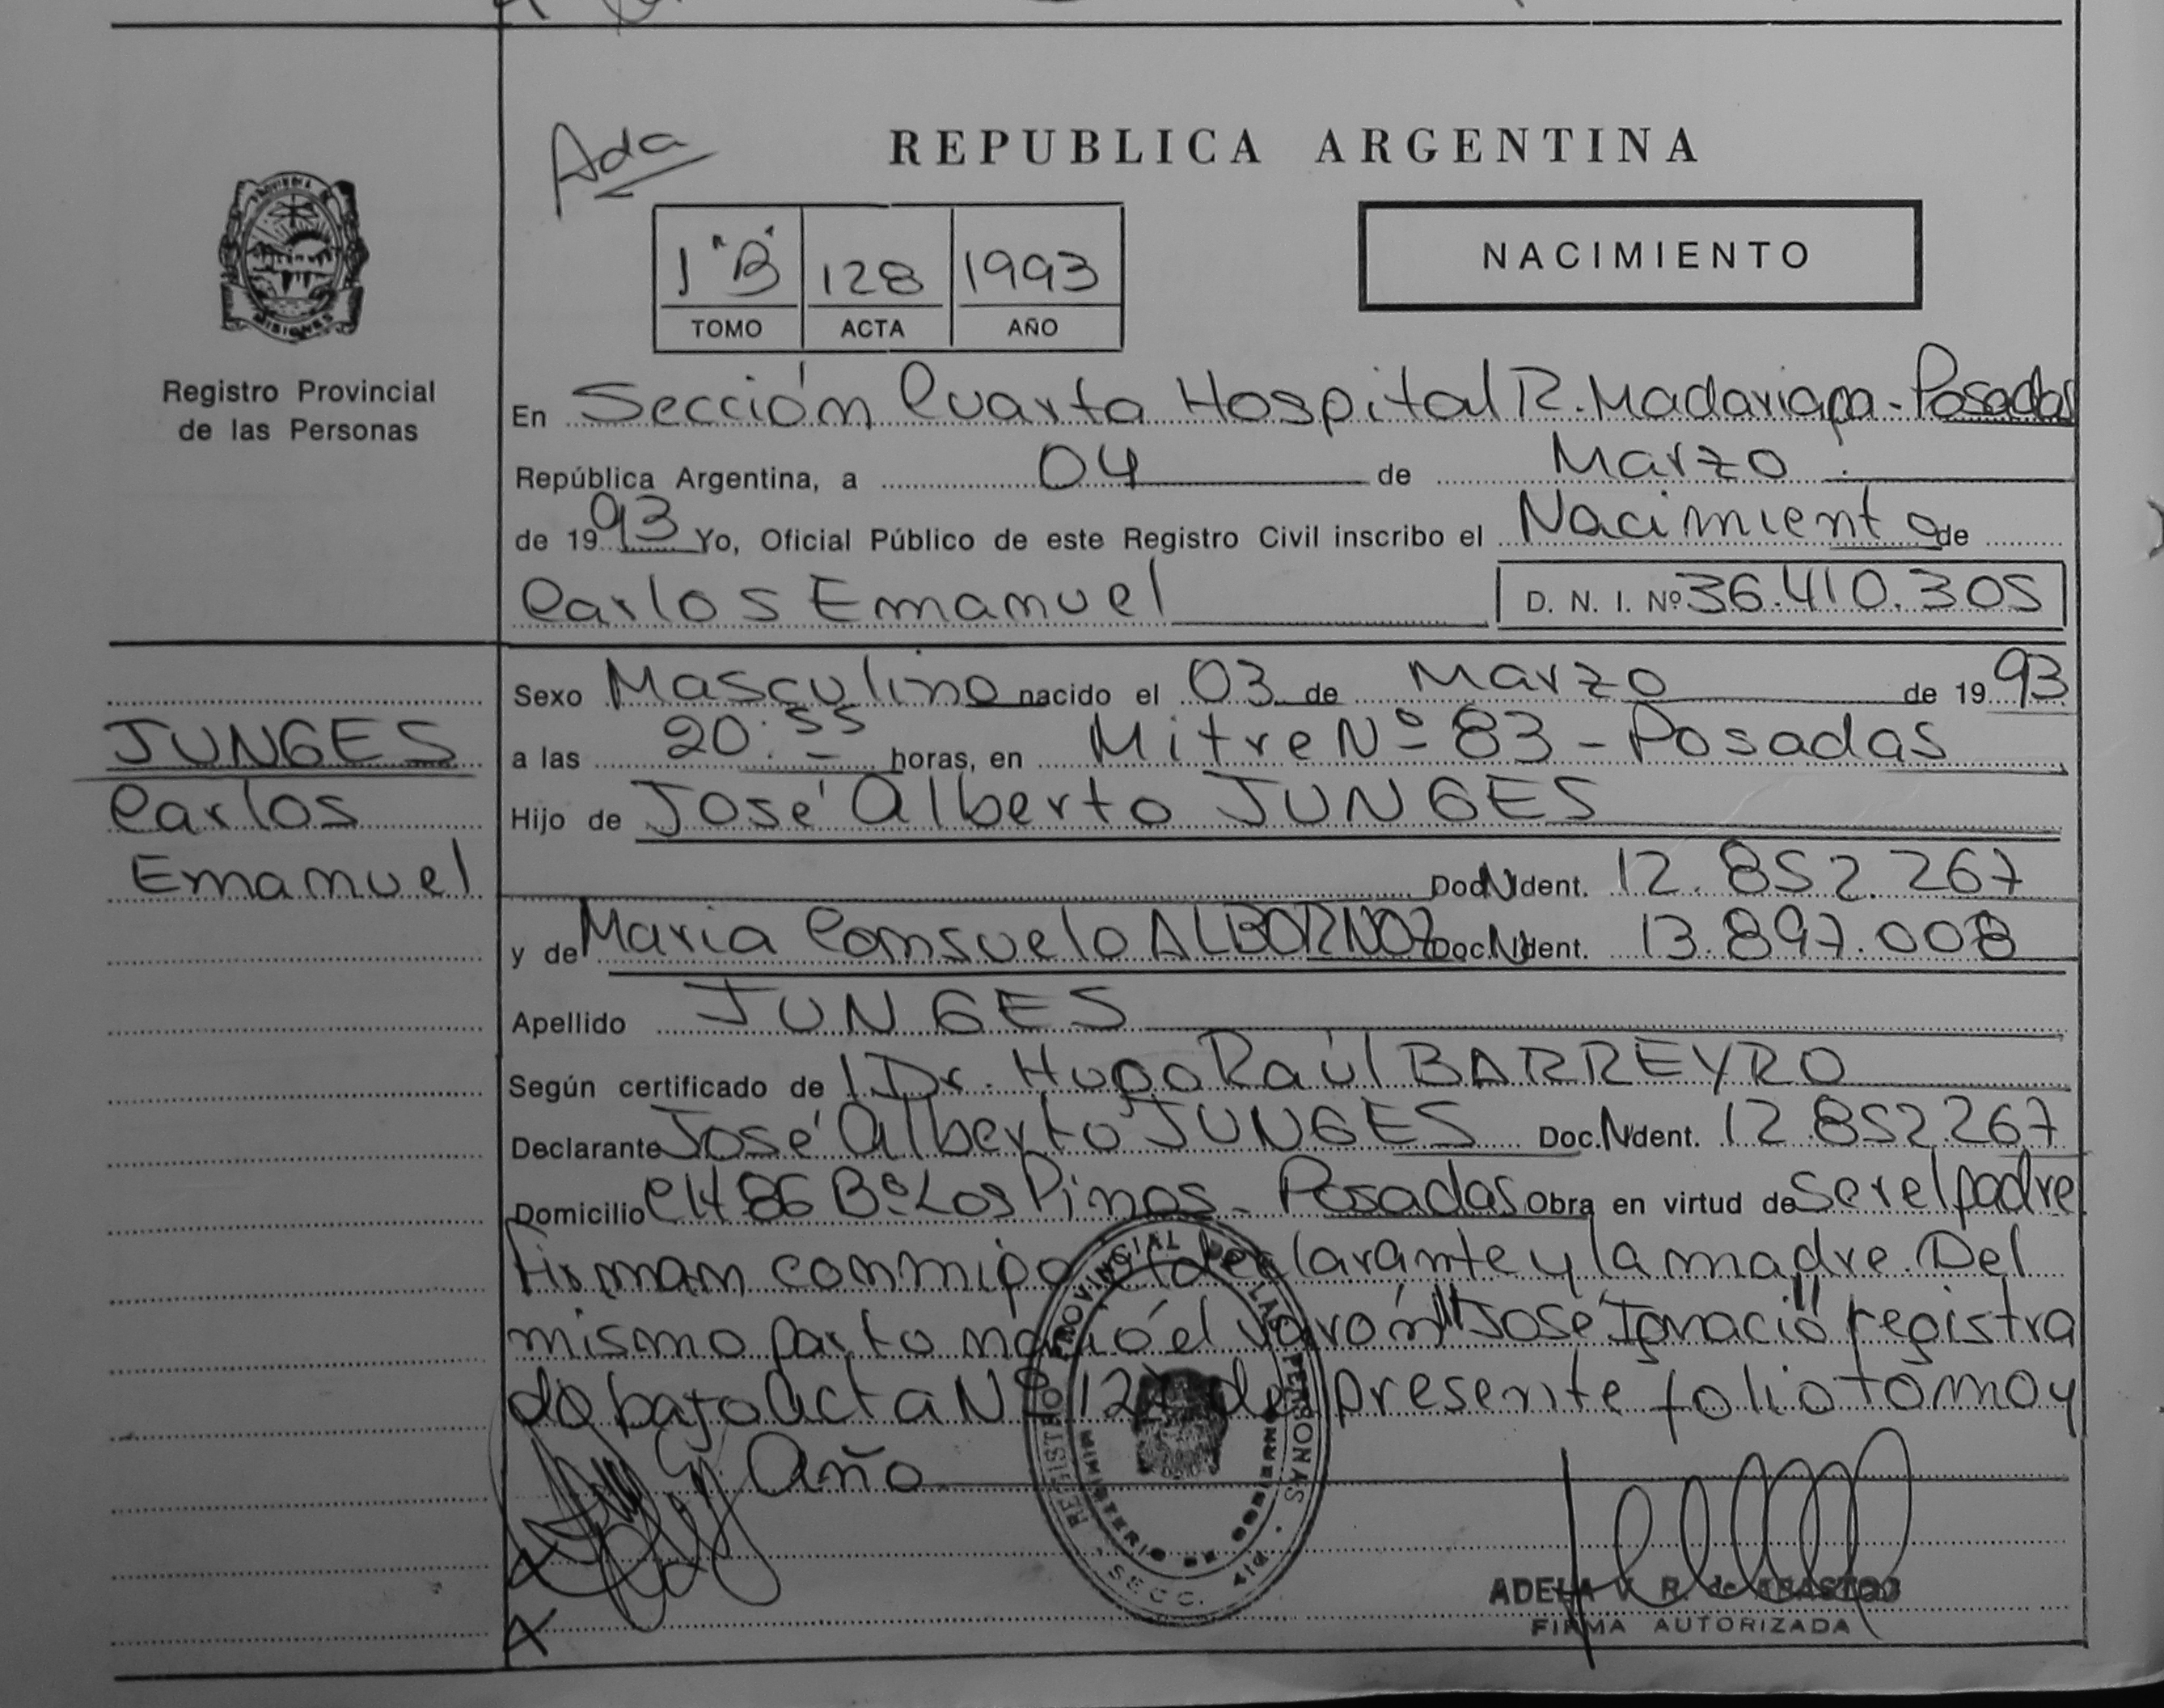 Ada
REPUBLICA ARGENTINA
1 "B" 128 1993
TOMO ACTA AÑO
NACIMIENTO
PROVINCIA DE
MISIONES
Registro Provincial
de las Personas
En Sección Cuarta Hospital R. Madariaga - Posadas
República Argentina, a 04 de Marzo
de 1993 Yo, Oficial Público de este Registro Civil inscribo el Nacimiento de
Carlos Emanuel D. N. I. Nº 36.410.305
JUNGES
Carlos
Emanuel
Sexo Masculino nacido el 03 de Marzo de 1993
a las 20:55 horas, en Mitre Nº 83 - Posadas
Hijo de José Alberto JUNGES
Doc.N Ident. 12.852.267
y de Maria Consuelo ALBORNOZ Doc.N Ident. 13.897.008
Apellido JUNGES
Según certificado del Dr. Hugo Raúl BARREYRO
Declarante José Alberto JUNGES Doc.N Ident. 12.852.267
Domicilio CH 86 Bº Los Pinos - Posadas Obra en virtud de ser el padre
Firman conmigo el declarante y la madre. Del
mismo parto nació el varón "José Ignacio" registra
do bajo Acta Nº 127 del presente folio tomo y
Año
REGISTRO PROVINCIAL DE LAS PERSONAS
MINISTERIO DE GOBIERNO
SECC. 4ta
ADELA V. R. de
FIRMA AUTORIZADA